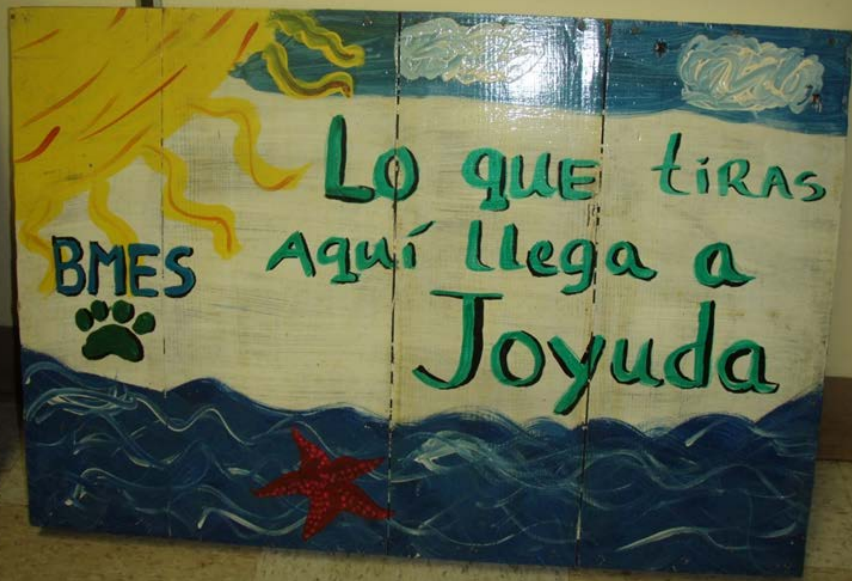 Lo que tiras
Aquí llega a
Joyuda
BMES